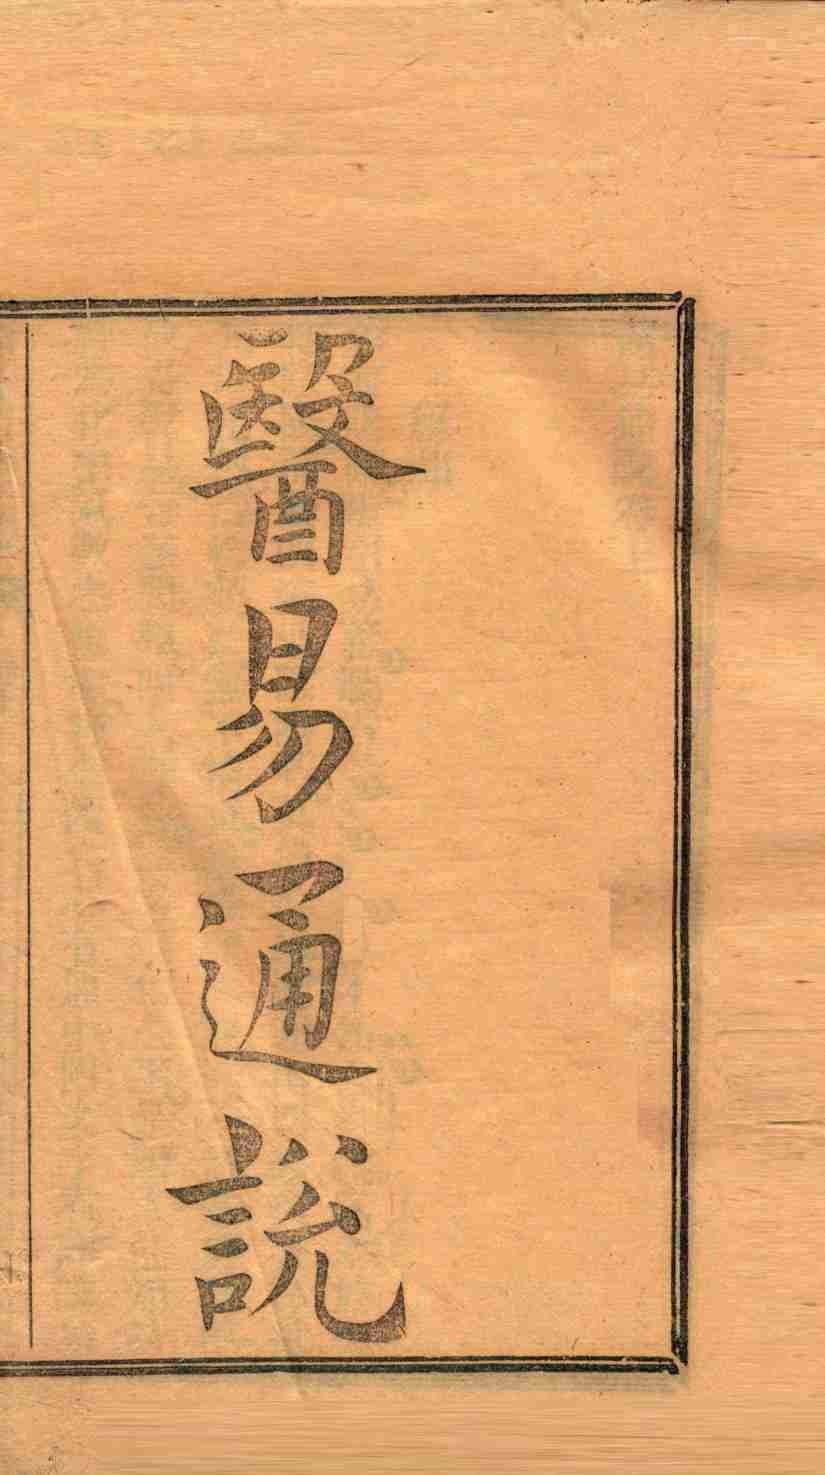 醫易通説